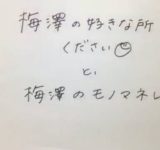 梅澤の好きな所
ください
と、
梅澤のモノマネし